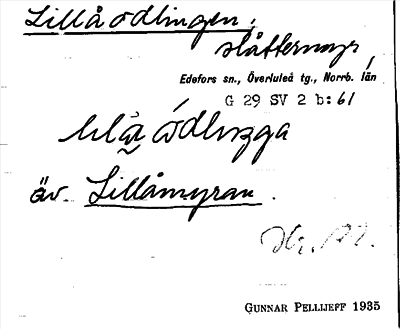 Lillåodlingen,
slåttermyr
Edefors sn., Överluleå tg., Norrb. län
G 29 SV 2 b:61
äv. Lillåmyran.
GUNNAR PELLIJEFF 1935